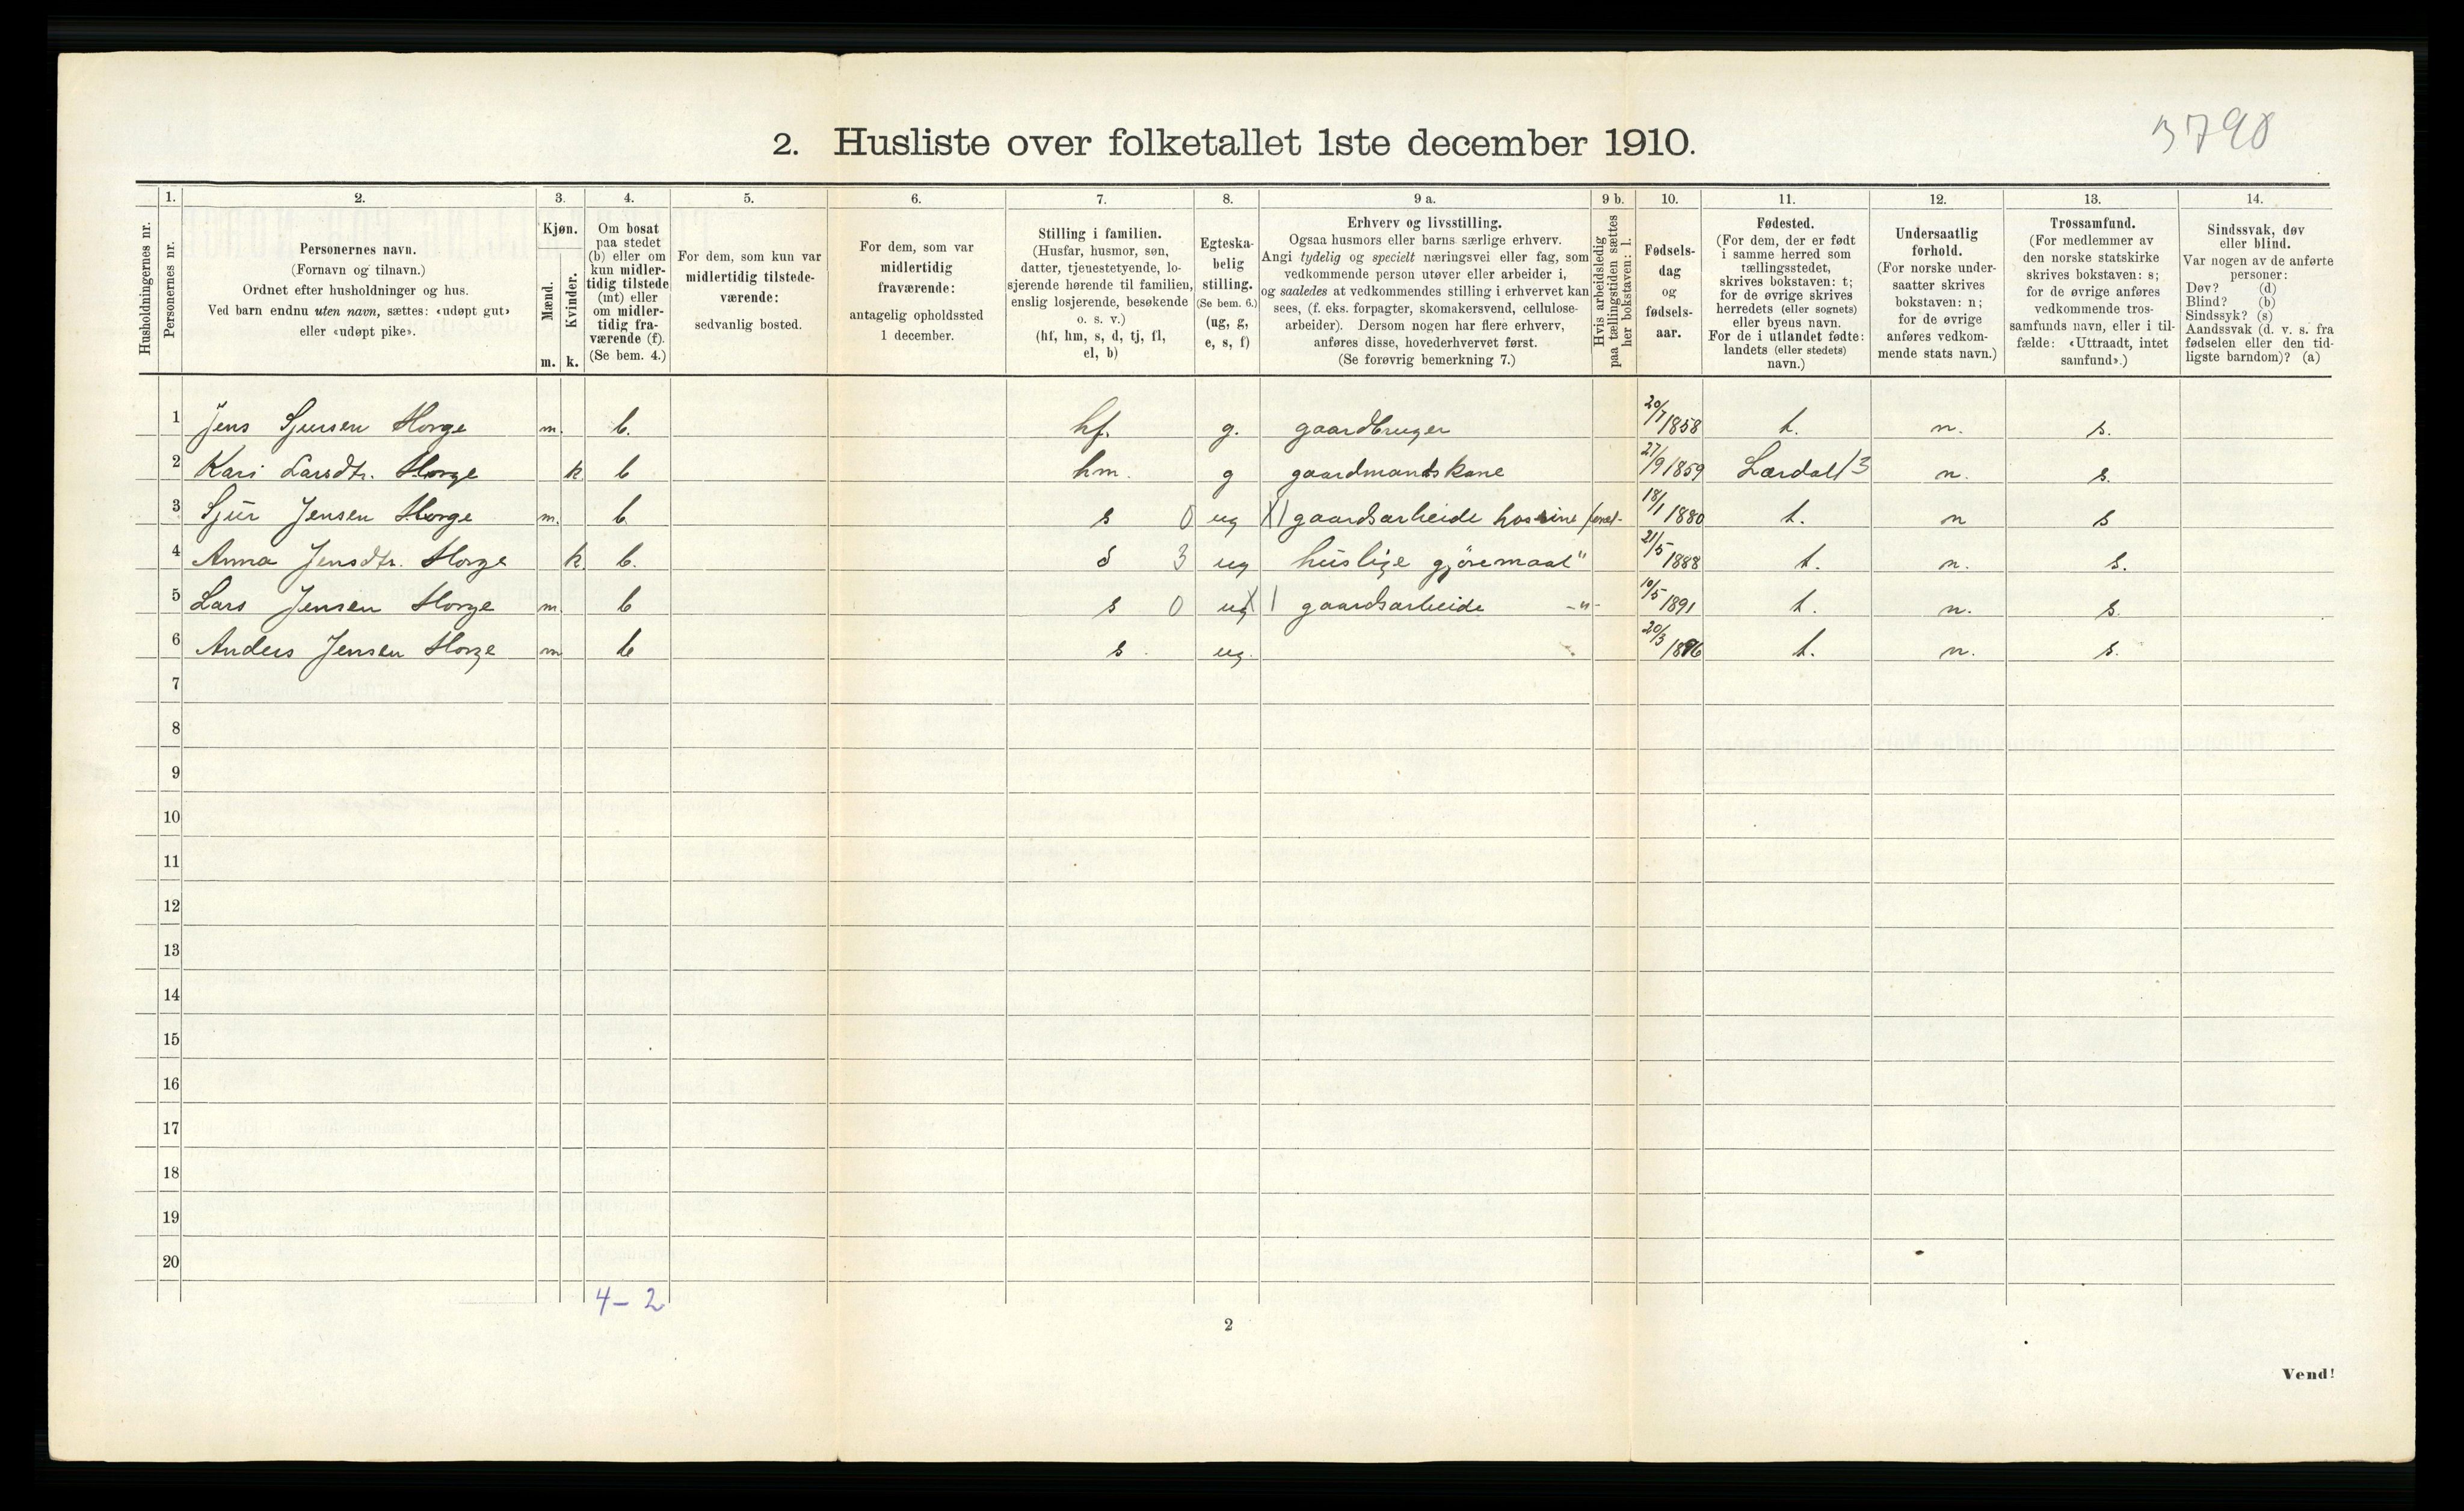 3790
2. Husliste over folketallet 1ste december 1910.
Husholdningernes nr.
1.
Personernes nr.
2.
Personernes navn.
(Fornavn og tilnavn.)
Ordnet efter husholdninger og hus.
Ved barn endnu uten navn, sættes: «udøpt gut»
eller «udøpt pike».
3.
Kjøn.
Mænd.
Kvinder.
m. k.
4.
Om bosat
paa stedet
(b) eller om
kun midler-
tidig tilstede
(mt) eller
om midler-
tidig fra-
værende (f).
(Se bem. 4.)
5.
For dem, som kun var
midlertidig tilstede-
værende:
sedvanlig bosted.
6.
For dem, som var
midlertidig
fraværende:
antagelig opholdssted
1 december.
7.
Stilling i familien.
(Husfar, husmor, søn,
datter, tjenestetyende, lo-
sjerende hørende til familien,
enslig losjerende, besøkende
o. s. v.)
(hf, hm, s, d, tj, fl,
el, b)
8.
Egteska-
belig
stilling.
(Se bem. 6.)
(ug, g,
e, s, f)
9 a.
Erhverv og livsstilling.
Ogsaa husmors eller barns særlige erhverv.
Angi tydelig og specielt næringsvei eller fag, som
vedkommende person utøver eller arbeider i,
og saaledes at vedkommendes stilling i erhvervet kan
sees, (f. eks. forpagter, skomakersvend, cellulose-
arbeider). Dersom nogen har flere erhverv,
anføres disse, hovederhvervet først.
(Se forøvrig bemerkning 7.)
9 b.
Hvis arbeidsledig
paa tællingstiden sættes
her bokstaven: l.
10.
Fødsels-
dag
og
fødsels-
aar.
11.
Fødested.
(For dem, der er født
i samme herred som
tællingsstedet,
skrives bokstaven: t;
for de øvrige skrives
herredets (eller sognets)
eller byens navn.
For de i utlandet fødte:
landets (eller stedets)
navn.)
12.
Undersaatlig
forhold.
(For norske under-
saatter skrives
bokstaven: n;
for de øvrige
anføres vedkom-
mende stats navn.)
13.
Trossamfund.
(For medlemmer av
den norske statskirke
skrives bokstaven: s;
for de øvrige anføres
vedkommende tros-
samfunds navn, eller i til-
fælde: «Uttraadt, intet
samfund».)
14.
Sindssvak, døv
eller blind.
Var nogen av de anførte
personer:
Døv? (d)
Blind? (b)
Sindssyk? (s)
Aandssvak (d. v. s. fra
fødselen eller den tid-
ligste barndom)? (a)
1 Jens Sjursen Horge m. b. hf. g. gaardbruger 20/7 1858 t. n. s.
2 Kari Larsdtr. Horge k b hm. g gaardmandskone 27/9 1859 Lærdal 13 n. s.
3 Sjur Jensen Horge m. b. s 0 ug X 1 gaardsarbeide hos sine 18/1 1880 t. n s
4 Anna Jensdtr. Horge k. b. d 3 ug huslige gjøremaal " 21/5 1888 t. n. s.
5 Lars Jensen Horge m. b s 0 ug X 1 gaardsarbeide -"- 10/5 1891 t. n. s.
6 Anders Jensen Horge m b s. ug. 20/3 1896 t. n. s.
7
8
9
10
11
12
13
14
15
16
17
18
19
20
4 - 2
2
Vend!